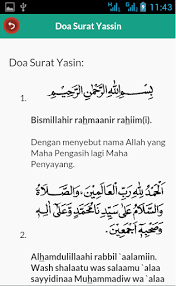 11:43
Doa Surat Yassin
Doa Surat Yasin:
1.
بِسْمِ اللهِ الرَّحْمٰنِ الرَّحِيْمِ
Bismillahir raẖmaanir raẖiim(i).
Dengan menyebut nama Allah yang
Maha Pengasih lagi Maha
Penyayang.
2.
اَلْحَمْدُ لِلّٰهِ رَبِّ الْعَالَمِيْنَ. وَالصَّلَاةُ
وَالسَّلَامُ عَلَى سَيِّدِنَا مُحَمَّدٍ وَعَلَى اٰلِهِ
وَصَحْبِهِ اَجْمَعِيْنَ.
Alẖamdulillaahi rabbil `aalamiin.
Wash shalaatu was salaamu `alaa
sayyidinaa Muẖammadiw wa `alaa